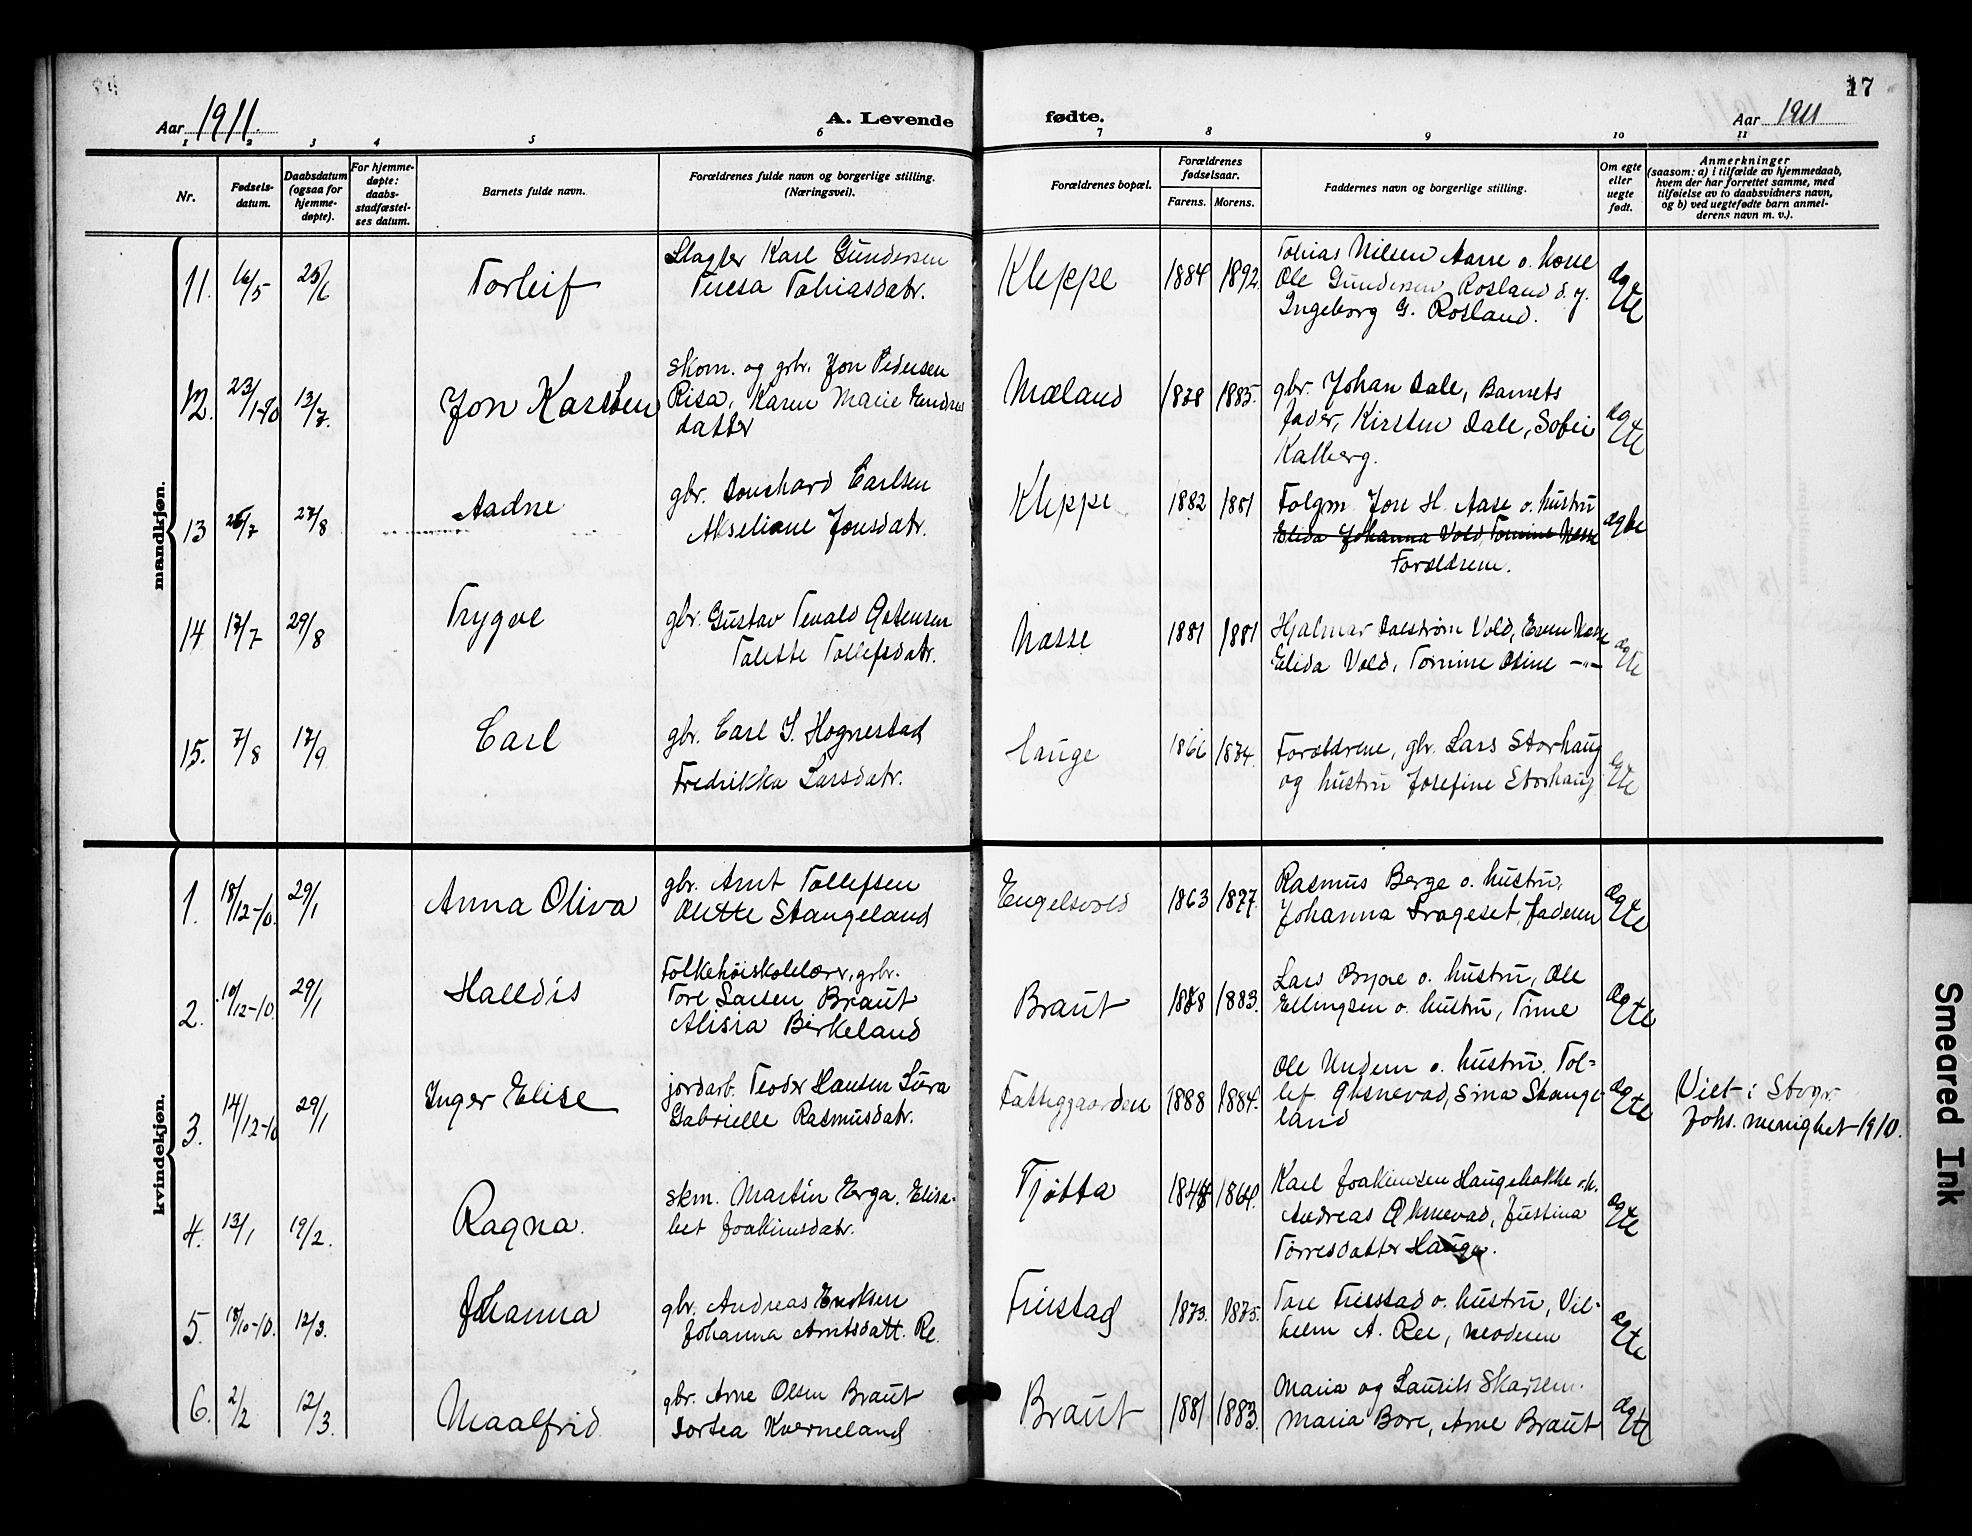 17
Aar 1911. A. Levende fødte. Aar 1911
1 2 3 4 5 6 7 8 9 10 11
Nr. Fødselsdatum. Daabsdatum (ogsaa for hjemmedøpte). For hjemmedøpte: daabsstadfæstelses datum. Barnets fulde navn. Forældrenes fulde navn og borgerlige stilling. (Næringsvei). Forældrenes bopæl. Forældrenes fødselsaar. Farens. Morens. Faddernes navn og borgerlige stilling. Om egte eller uegte født. Anmerkninger (saasom: a) i tilfælde av hjemmedaab, hvem der har forrettet samme, med tilføielse av to daabsvidners navn, og b) ved uegtefødte barn anmelderens navn m. v.).
mandkjøn.
11. 16/5 25/6 Torleif Slagter Karl Gundersen
Teresa Tobiasdatr. Kleppe 1884 1892. Tobias Nilsen Aase o. kone
Ole Gundersen Rosland d. y.
Ingeborg G. Rosland. ægte
12. 23/1-90 13/7. Jon Karsten skom. og gbr. Jon Pedersen
Risa, Karen Marie
datter Mæland 1885. gbr. Johan Dale, Barnets
fader, Kirsten Dale, Sofie
Kalberg. ægte
13 27/8 Aadne gbr. Carlsen
Akseliane Jonsdatr. Kleppe 1882 1881 Folgm. Jon H. Aase o. hustru
Elida Johanna Vold, Tomine Næsse
Forældrene. ægte
14 17/7 29/8 Trygve gbr. Gustav Tevald
Talette Tollefsdatr. Næsse 1881 1881 Hjalmar Dalstrøm Vold, Even Næsse
Elida Vold, Tomine Oline -"- ægte
15. 7/8 17/9 Carl gbr. Carl I. Hognestad
Fredrikka Larsdatr. Hauge 1866 1874. Forældrene, gbr. Lars Storhaug
og hustru Josefine Storhaug ægte
kvindekjøn.
1. 18/12-10. 29/1 Anna Oliva gbr. Arnt Tollefsen
Olette Stangeland Engelsvold 1863 1877. Rasmus Berge o. hustru,
Johanna Drageset, faderen ægte
2. 10/12-10. 29/1 Halldis Folkehøiskolelærer, gbr.
Tore Larsen Braut
Alisia Birkeland Braut 1878 1883. Lars Bryne o. hustru, Ole
Ellingsen o. hustru, Trine ægte
3. 14/12-10 29/1 Inger Elise jordarb. Teodor Hansen Sura
Gabrielle Rasmusdatr. Fattiggaarden 1888 1884. Ole Undem o. hustru. Tol-
lef Øksnevad, Sina Stange-
land ægte Viet i Stvgr.
Johs. menighet 1910.
4. 13/1 19/2. Ragna. skm. Martin Erga. Elisa-
bet Joakimsdatr. Tjøtta 1864. Karl Joakimsen Haugebakke o.h.
Andreas Øksnevad, Justina
Torresdatter Hauge. ægte
5. 18/10-10. 12/3. Johanna gbr. Andreas Eriksen
Johanna Arntsdatt. Re. Friestad 1873. 1875. Tore Friestad o. hustru, Vil-
helm A. Ree, moderen ægte
6. 2/2 12/3. Maalfrid gbr. Arne Olsen Braut
Dortea Kverneland Braut 1881 1883. Maria og Laurits Skarsem.
Maria Bore, Arne Braut ægte
Smeared Ink